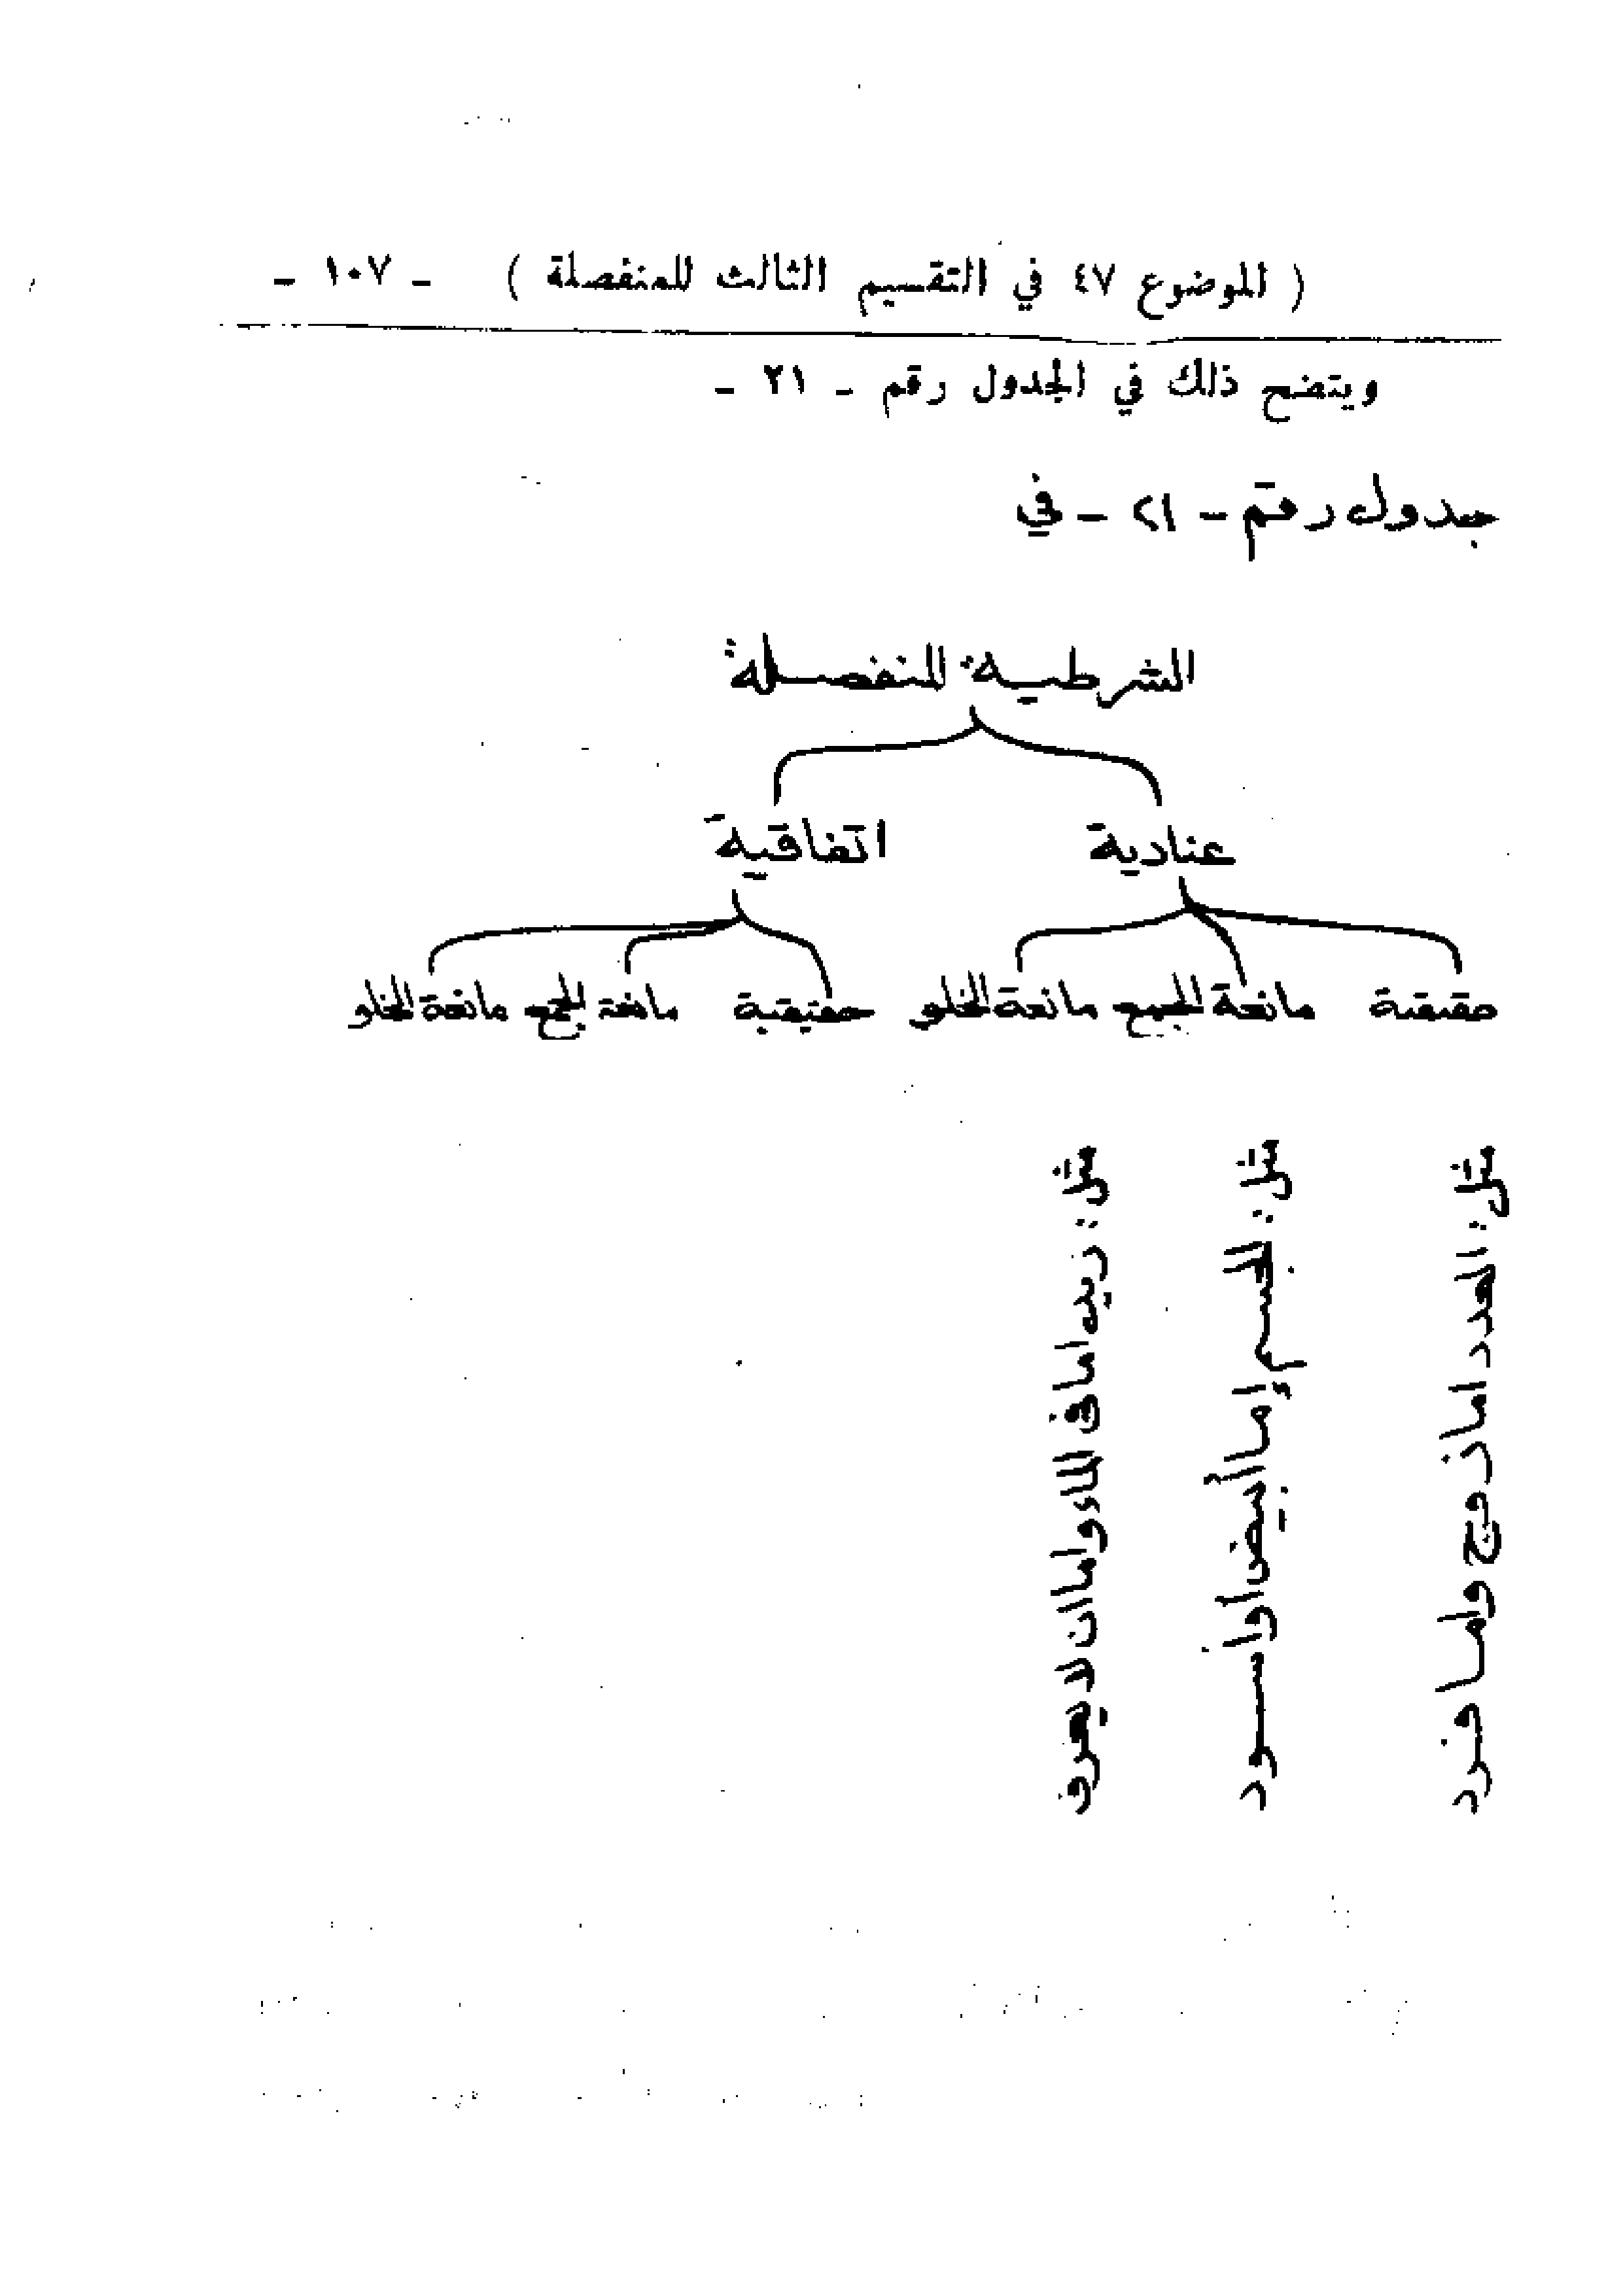 ( الموضوع ٤٧ في التقسيم الثالث للمنفصلة ) - ١٠٧ -
ويتضح ذلك في الجدول رقم - ٢١ -
جدول رقم - ٢١ - في
الشرطية المنفصلة
عنادية اتفاقية
حقيقية مانعة الجمع مانعة الخلو حقيقية مانعة الجمع مانعة الخلو
مثل: العدد اما زوج واما فرد
مثل: الجسم إما أبيض أو أسود
مثل: زيد اما في الماء واما ان لا يعرف